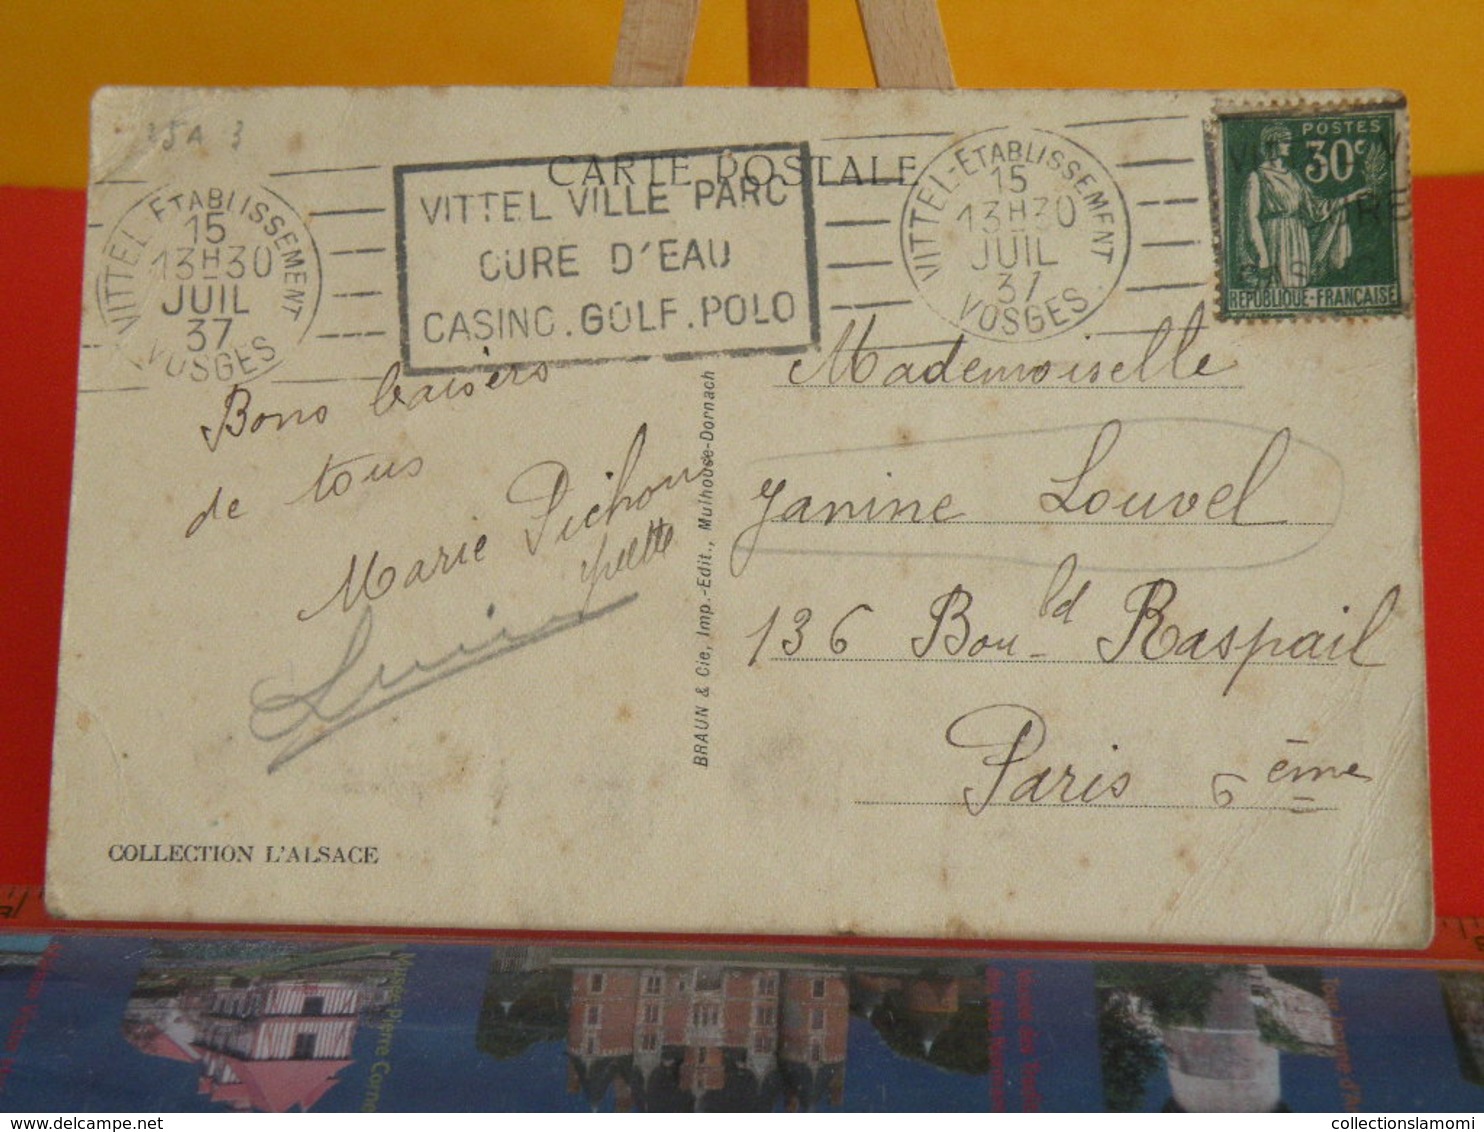 25A 3
CARTE POSTALE
VITTEL-ETABLISSEMENT
15
13H30
JUIL
37
VOSGES
VITTEL VILLE PARC
CURE D'EAU
CASINO.GOLF.POLO
VITTEL-ETABLISSEMENT
15
13H30
JUIL
37
VOSGES
POSTES
30c
REPUBLIQUE-FRANÇAISE
Bons baisers
de tous
Marie Pichon
Yvette
BRAUN & Cie, Imp.-Edit., Mulhouse-Dornach
Mademoiselle
Janine Louvel
136 Bould Raspail
Paris 6ème
COLLECTION L'ALSACE
Musée Pierre Corne
collectionslamomi